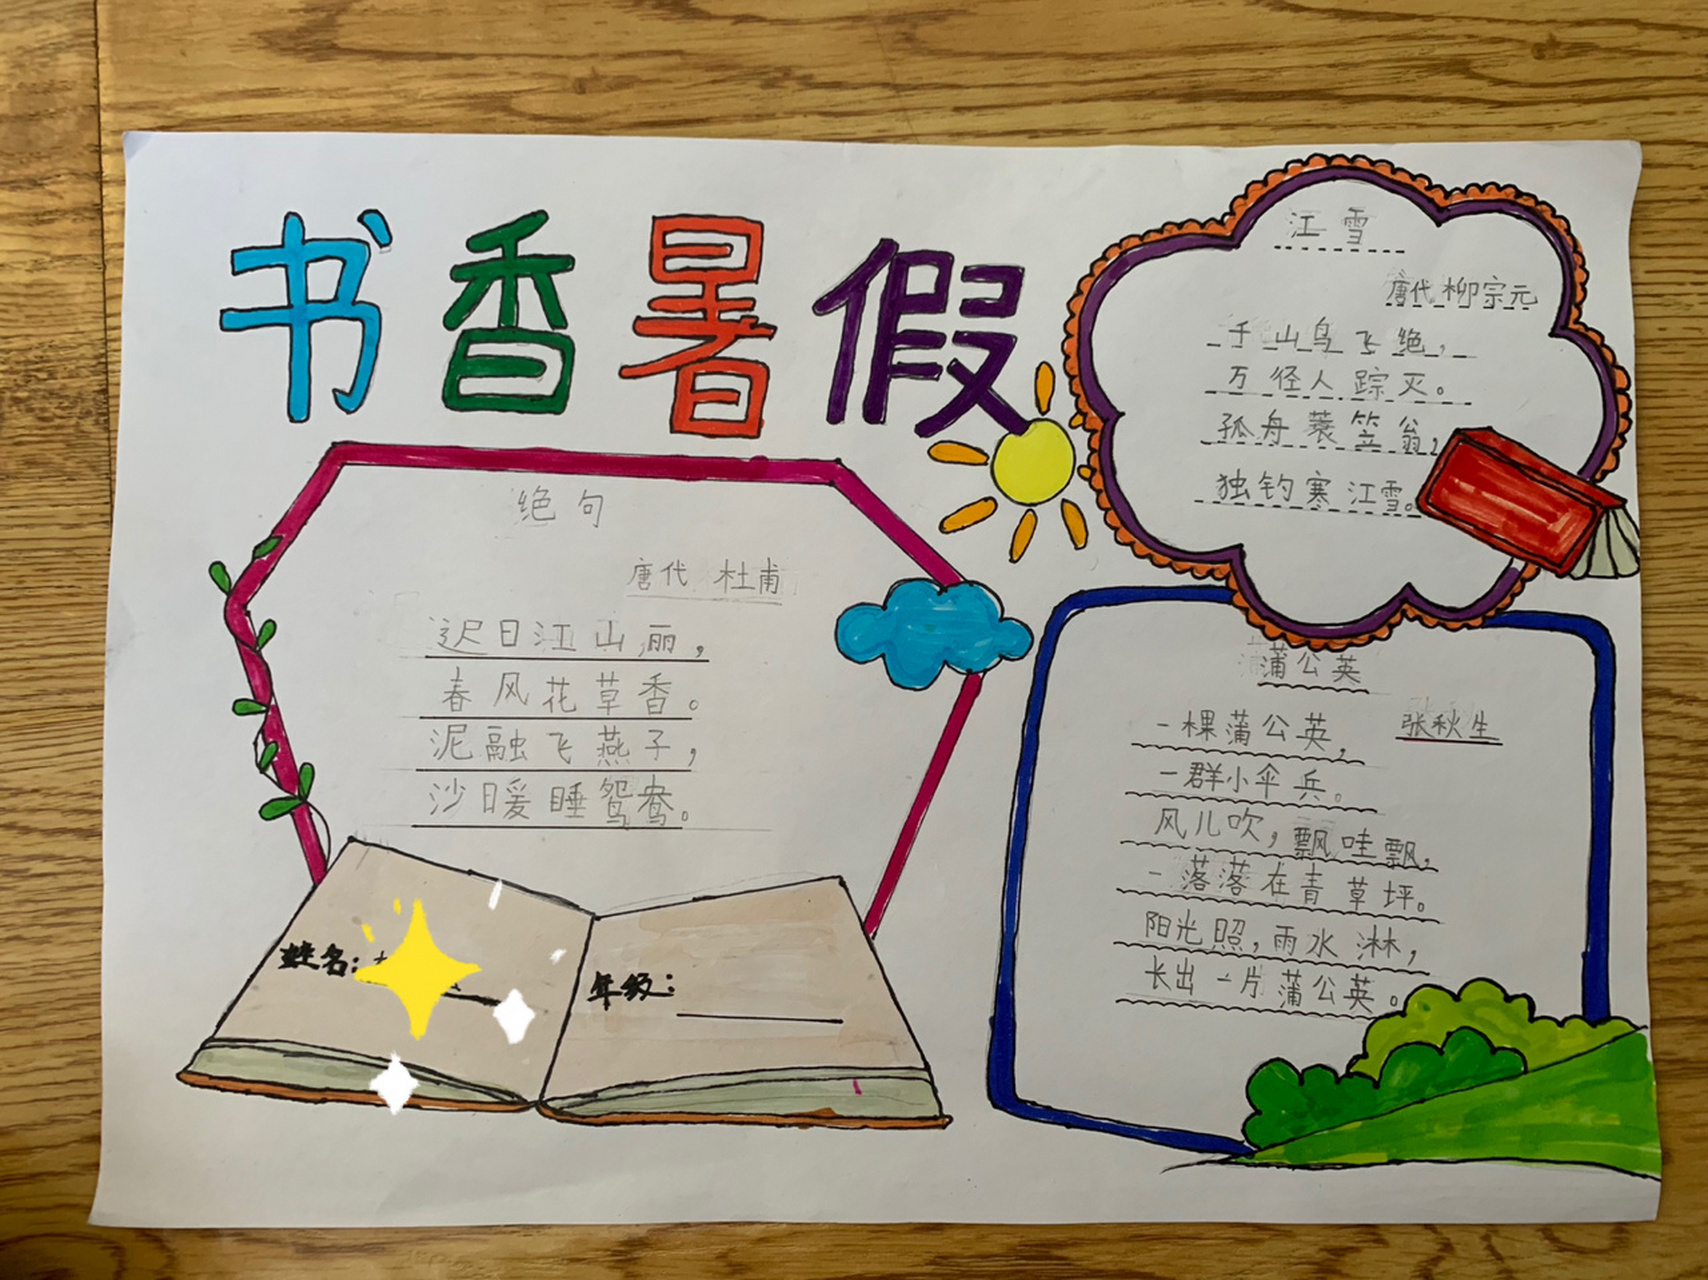 书香暑假
江雪
唐代 柳宗元
千山鸟飞绝，
万径人踪灭。
孤舟蓑笠翁，
独钓寒江雪。
绝句
唐代 杜甫
迟日江山丽，
春风花草香。
泥融飞燕子，
沙暖睡鸳鸯。
姓名：
年级：
蒲公英
张秋生
一棵蒲公英，
一群小伞兵。
风儿吹，飘哇飘，
一落落在青草坪。
阳光照，雨水淋，
长出一片蒲公英。